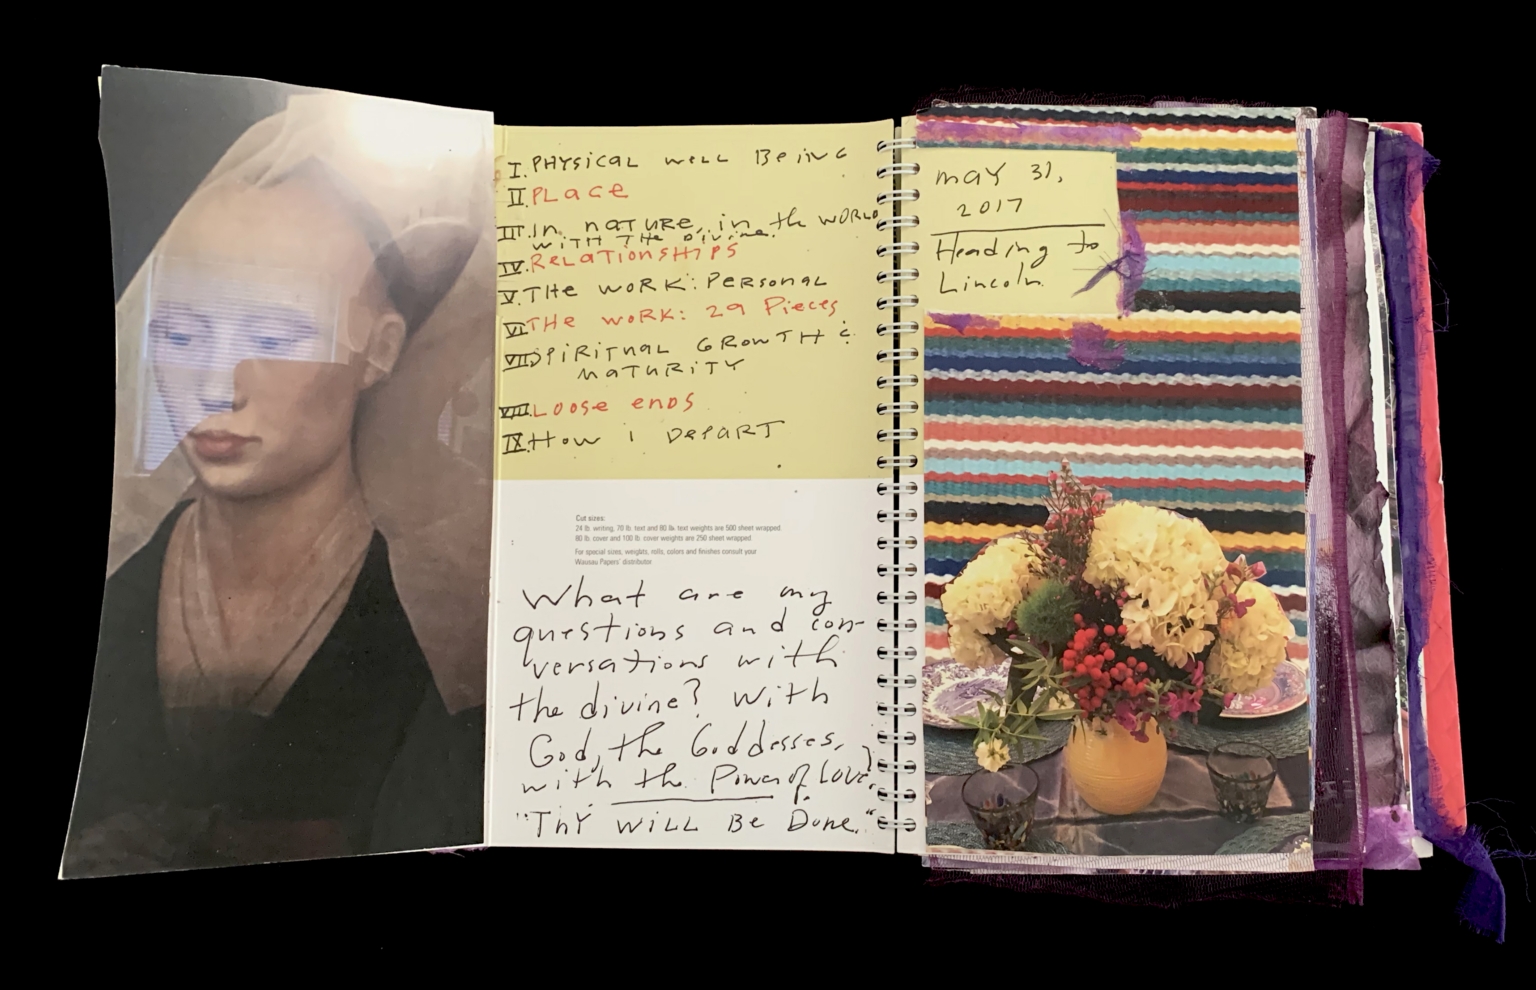 I. PHYSICAL WELL BEING
II. PLACE
III. In NATURE, in the WORLD
WITH THE DIVINE.
IV. RELATIONSHIPS
V. THE WORK: PERSONAL
VI. THE WORK: 29 Pieces
VII. SPIRITUAL GROWTH &
MATURITY
VIII. LOOSE ENDS
IX. HOW I DEPART
Cut sizes:
24 lb. writing, 70 lb. text and 80 lb. text weights are 500 sheet wrapped.
80 lb. cover and 100 lb. cover weights are 250 sheet wrapped
For special sizes, weights, rolls, colors and finishes consult your
Wausau Papers' distributor
What are my
questions and con-
versations with
the divine? With
God, the Goddesses,
with the Power of Love?
"THY WILL BE Done."
MAY 31,
2017
Heading to
Lincoln.